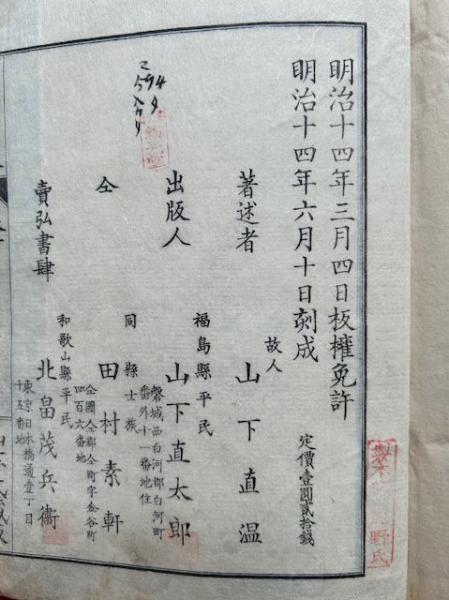 明治十四年三月四日板權免許
明治十四年六月十日刻成
定價壹圓貳拾錢
著述者
故人
山下直温
出版人
福島縣平民
山下直太郎
磐城西白河郡白河町
番外十一番地住
仝
同縣士族
田村素軒
仝國仝郡仝町字金谷町
四百六番地
賣弘書肆
和歌山縣平民
北畠茂兵衞
東京日本橋通壹丁目
十五番地